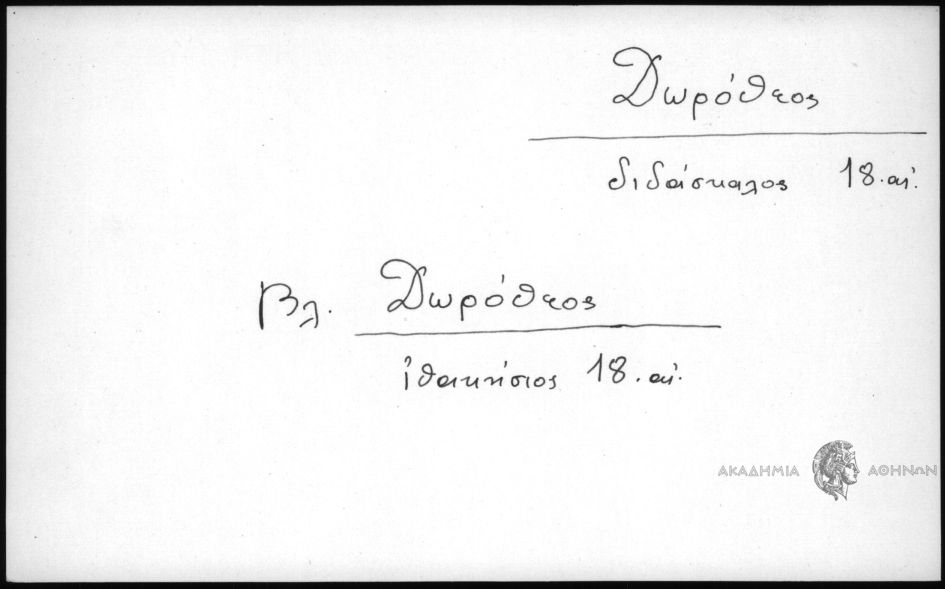 Δωρόθεος
διδάσκαλος 18. αἰ.
Βλ. Δωρόθεος
ἰθακήσιος 18. αἰ.
ΑΚΑΔΗΜΙΑ ΑΘΗΝΩΝ